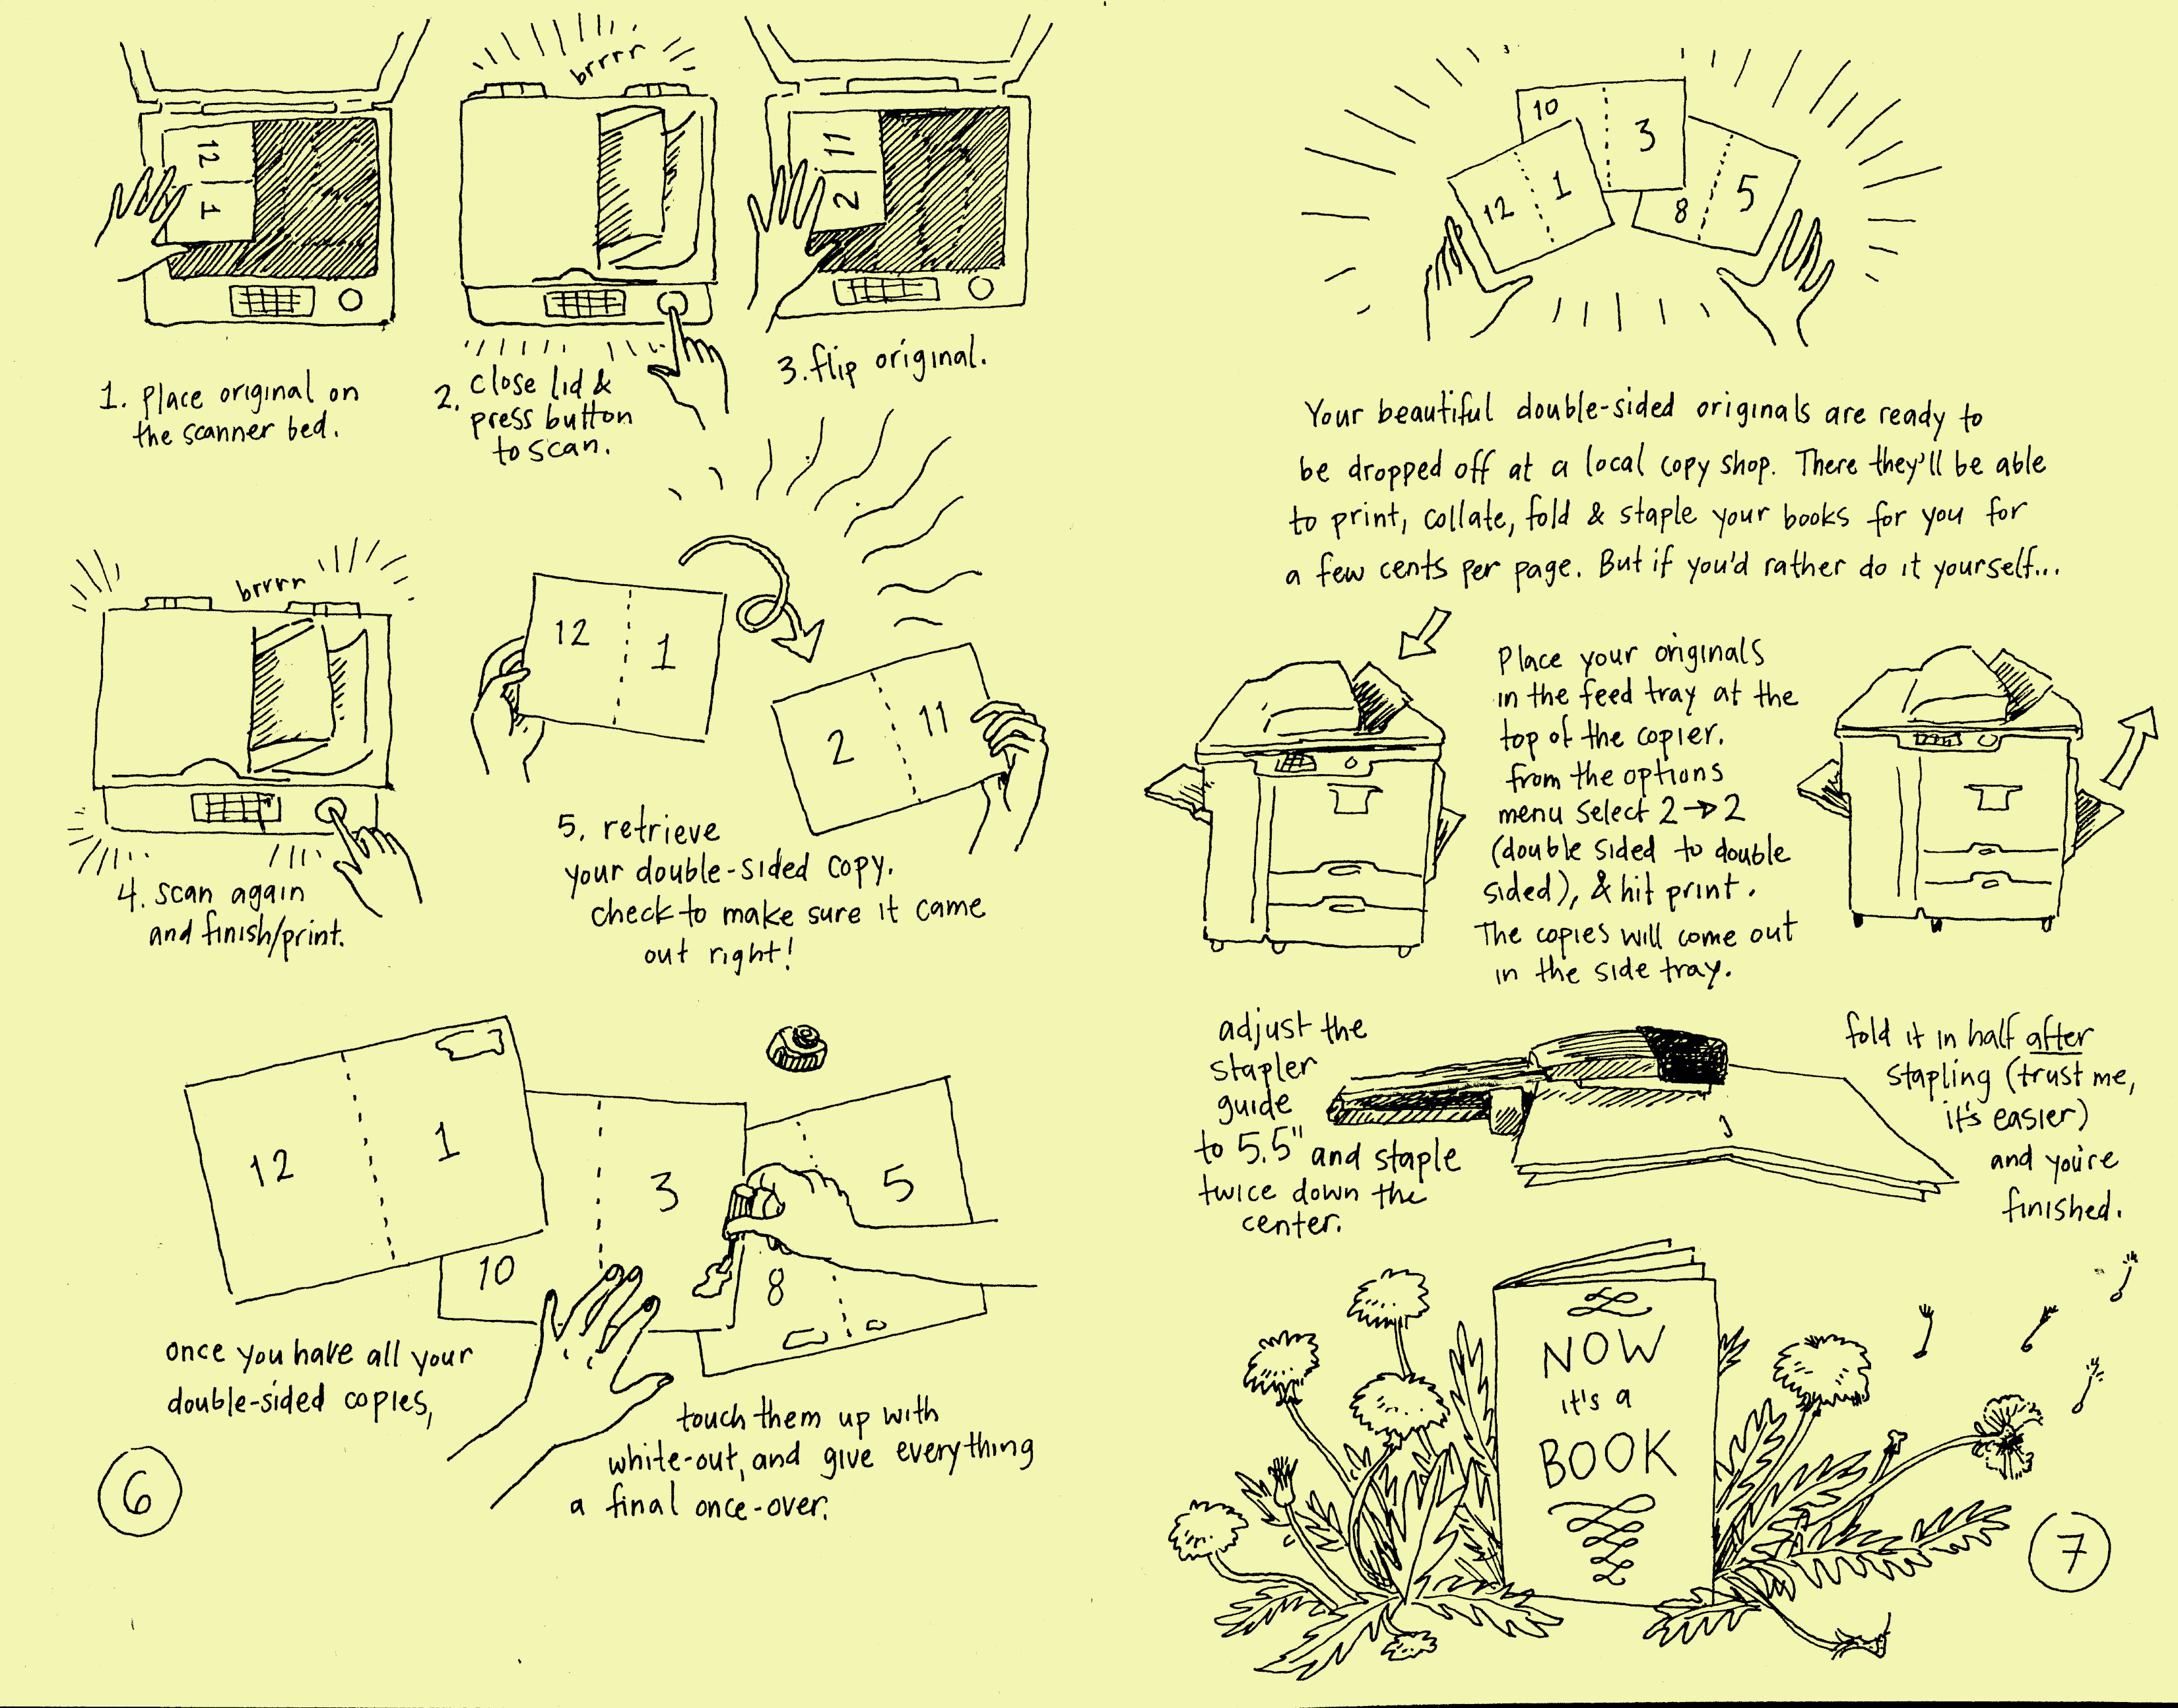 12
1
1. Place original on
the scanner bed.
brrrr
2. Close lid &
press button
to scan.
11
2
3. flip original.
brrrr
4. scan again
and finish/print.
12 1
2 11
5. retrieve
your double-sided copy.
check to make sure it came
out right!
12 1
10 3
8 5
once you have all your
double-sided copies,
touch them up with
white-out, and give everything
a final once-over.
6
10 3
12 1
8 5
Your beautiful double-sided originals are ready to
be dropped off at a local copy shop. There they'll be able
to print, collate, fold & staple your books for you for
a few cents per page. But if you'd rather do it yourself...
Place your originals
in the feed tray at the
top of the copier.
from the options
menu select 2→2
(double sided to double
sided), & hit print.
The copies will come out
in the side tray.
adjust the
stapler
guide
to 5.5" and staple
twice down the
center.
fold it in half after
stapling (trust me,
it's easier)
and you're
finished.
NOW
it's a
BOOK
7